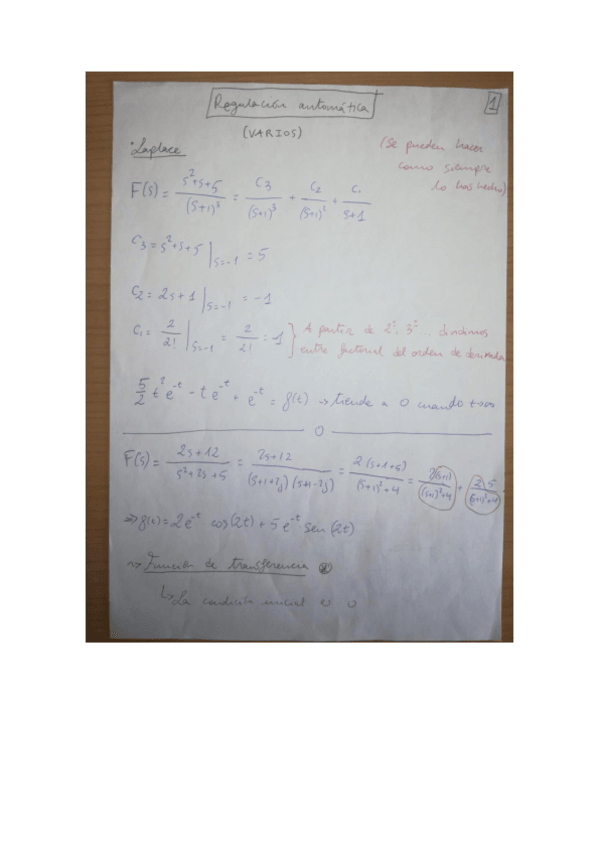 Regulación automática
1
(VARIOS)
· Laplace
(Se pueden hacer
como siempre
lo has hecho)
F(s) = s²+s+5 / (s+1)³ = C₃ / (s+1)³ + C₂ / (s+1)² + C₁ / s+1
C₃ = s²+s+5 |s=-1 = 5
C₂ = 2s+1 |s=-1 = -1
C₁ = 2/2! |s=-1 = 2/2! = 1 } A partir de 2ª, 3ª... dividimos
entre factorial del orden de derivada
5/2 t² e^-t - t e^-t + e^-t = f(t) → tiende a 0 cuando t→∞
0
F(s) = 2s+12 / s²+2s+5 = 2s+12 / (s+1+2j)(s+1-2j) = 2(s+1+5) / (s+1)²+4 = 2(s+1) / (s+1)²+4 + 2·5 / (s+1)²+4
⇒ f(t) = 2e^-t cos(2t) + 5e^-t sen(2t)
→ Función de transferencia
↳ La condición inicial es 0